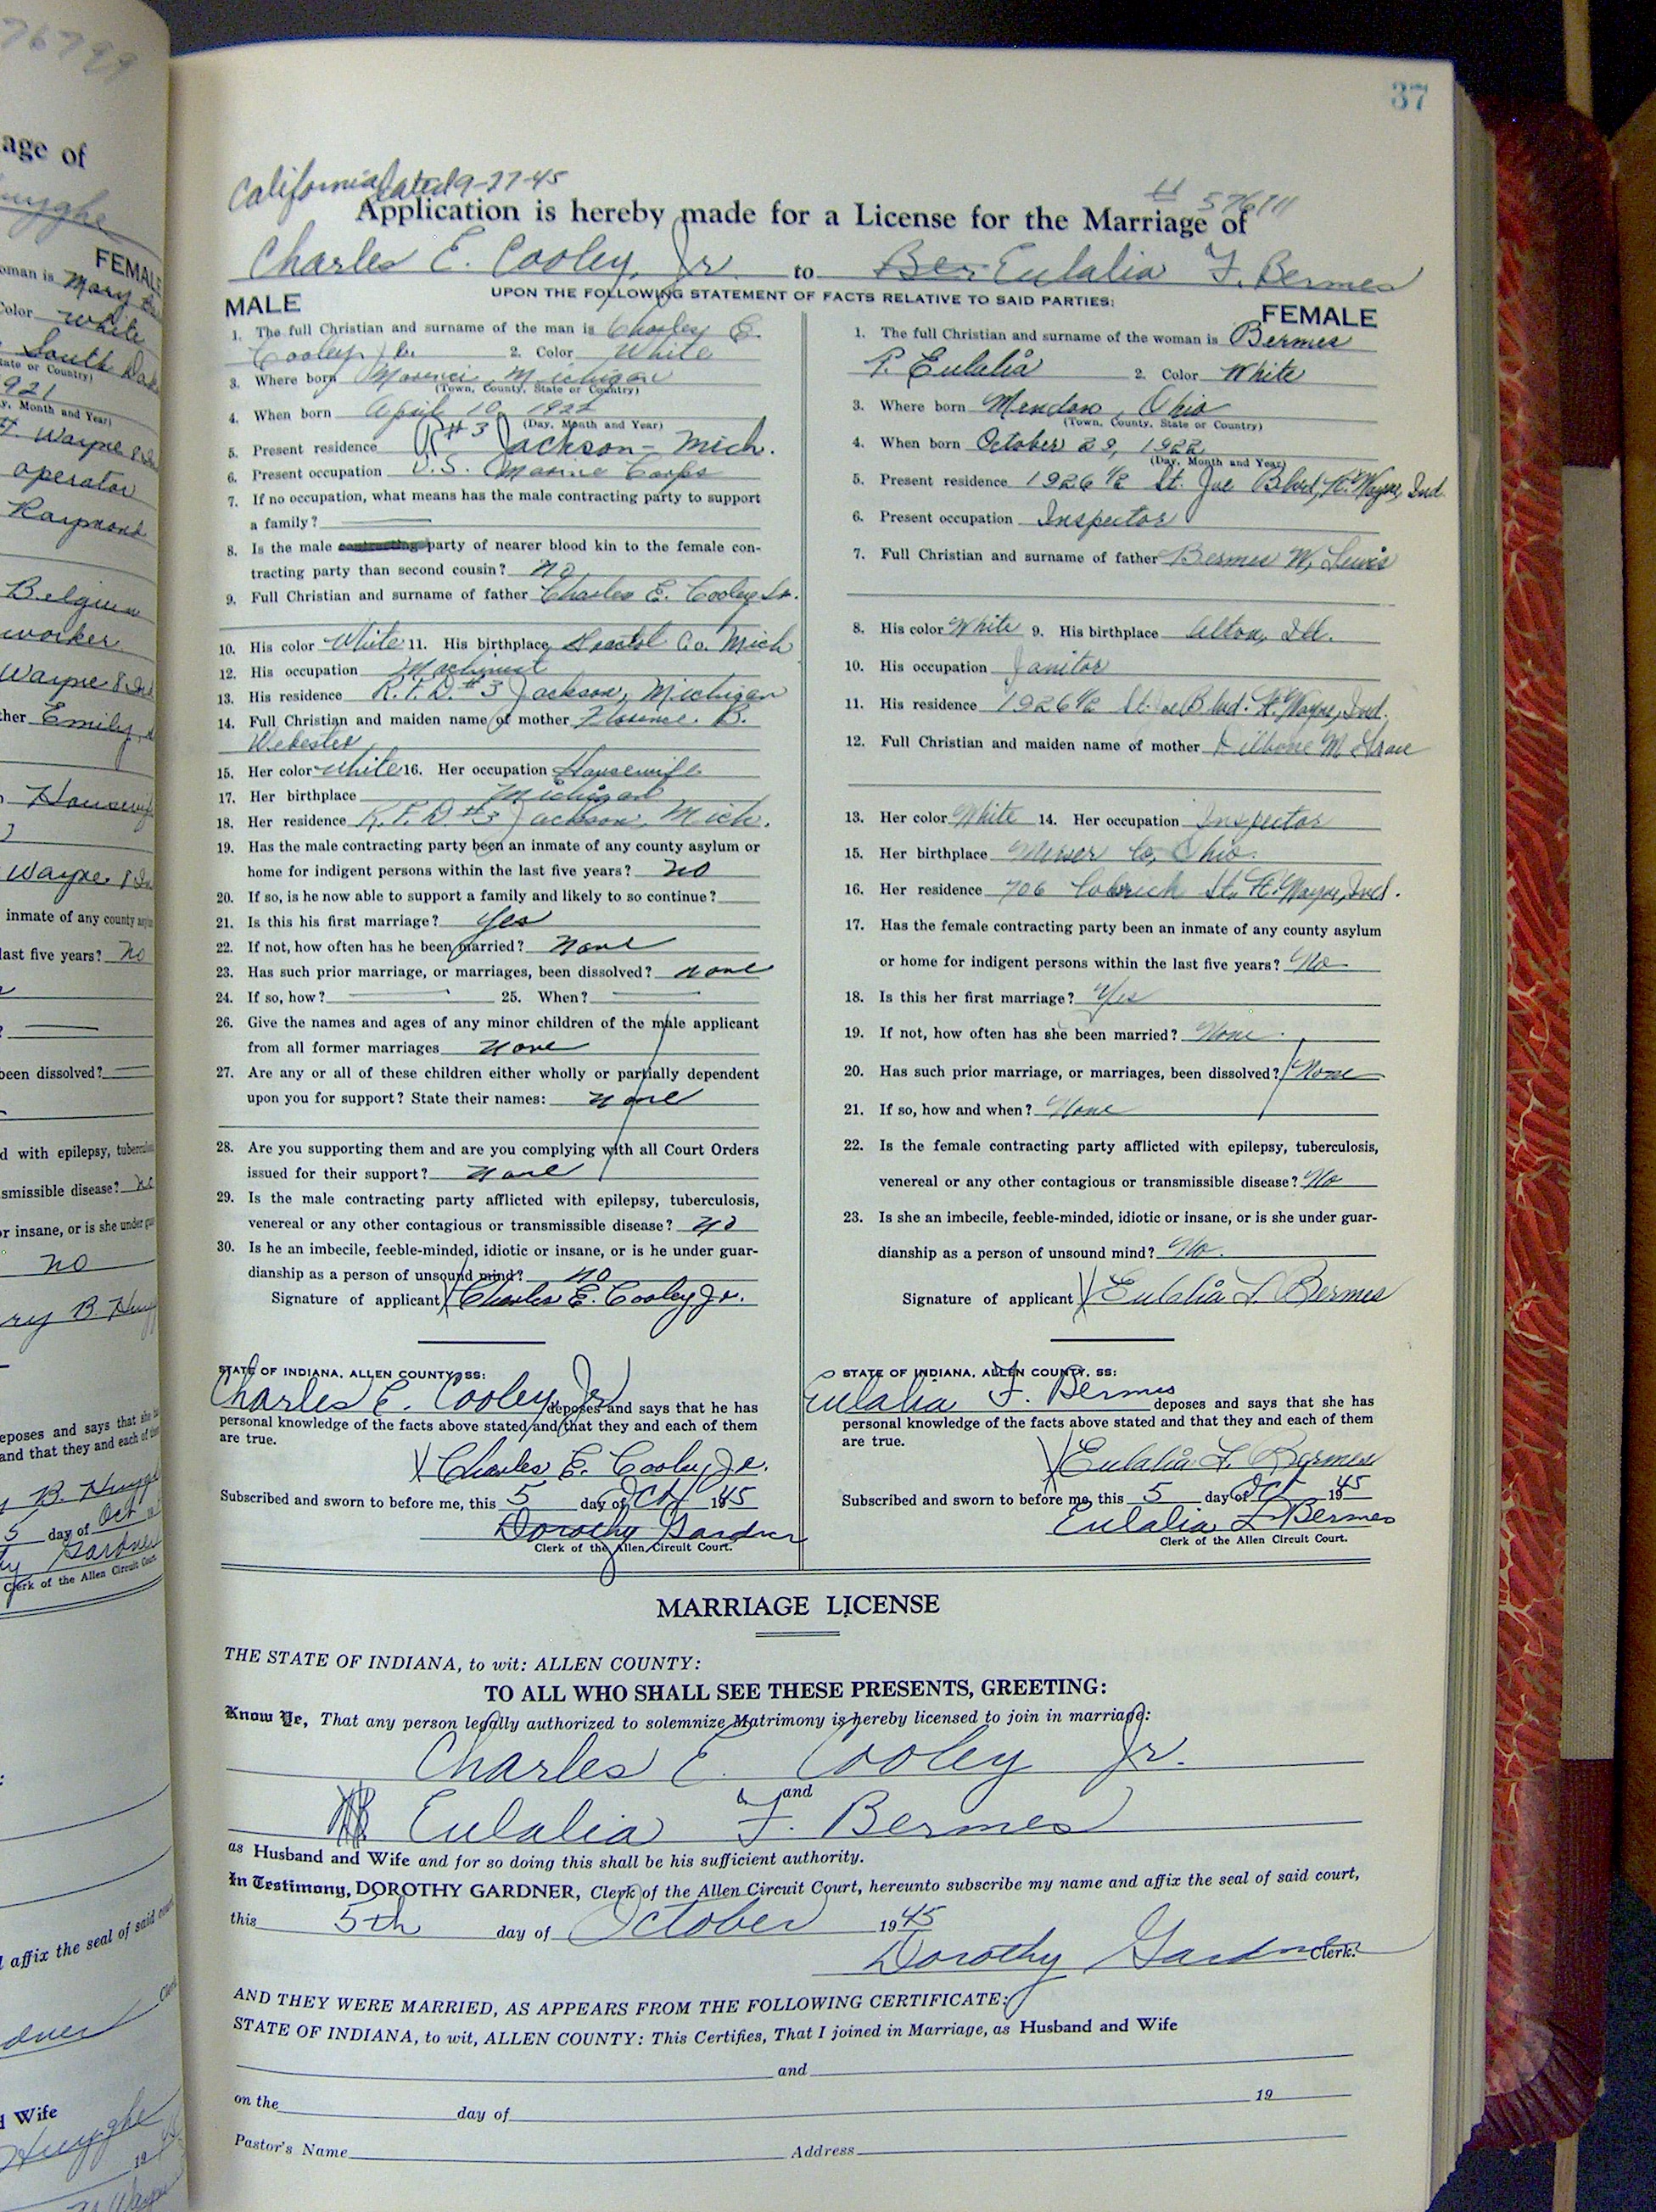 76799
age of
FEMALE
oman is Mary
Color White
South Dak
tate or Country)
921
y, Month and Year)
Ft. Wayne 8 Ind
operator
Raymond
Belgium
worker
Wayne 8 Ind
ther Emily
Housewife
Wayne 8 In
inmate of any county asylum
last five years? no
been dissolved?
d with epilepsy, tuberculosis
smissible disease? no
or insane, or is she under guar
no
ry B. Huyghe
eposes and says that she has
and that they and each of them
B. Huyghe
5 day of Oct 19
Gardner
Clerk of the Allen Circuit Court
affix the seal of said court
Clerk
d Wife
Huyghe
19
37
California dated 9-27-45
57611
Application is hereby made for a License for the Marriage of
Charles E. Cooley, Jr. to Ber Eulalia F. Bermes
UPON THE FOLLOWING STATEMENT OF FACTS RELATIVE TO SAID PARTIES:
MALE
1. The full Christian and surname of the man is Charles E.
Cooley Jr. 2. Color White
3. Where born Morenci, Michigan
(Town, County, State or Country)
4. When born April 10, 1922
(Day, Month and Year)
5. Present residence R#3 Jackson - Mich.
6. Present occupation U.S. Marine Corps
7. If no occupation, what means has the male contracting party to support
a family?
8. Is the male contracting party of nearer blood kin to the female con-
tracting party than second cousin? no
9. Full Christian and surname of father Charles E. Cooley Sr.
10. His color White 11. His birthplace Co. Mich
12. His occupation Machinist
13. His residence R.F.D. #3 Jackson, Michigan
14. Full Christian and maiden name of mother Florence. B.
Webester
15. Her color White 16. Her occupation Housewife
17. Her birthplace Michigan
18. Her residence R.F.D. #3 Jackson, Mich.
19. Has the male contracting party been an inmate of any county asylum or
home for indigent persons within the last five years? no
20. If so, is he now able to support a family and likely to so continue?
21. Is this his first marriage? Yes
22. If not, how often has he been married? none
23. Has such prior marriage, or marriages, been dissolved? none
24. If so, how? 25. When?
26. Give the names and ages of any minor children of the male applicant
from all former marriages none
27. Are any or all of these children either wholly or partially dependent
upon you for support? State their names: none
28. Are you supporting them and are you complying with all Court Orders
issued for their support? none
29. Is the male contracting party afflicted with epilepsy, tuberculosis,
venereal or any other contagious or transmissible disease? no
30. Is he an imbecile, feeble-minded, idiotic or insane, or is he under guar-
dianship as a person of unsound mind? no
Signature of applicant X Charles E. Cooley Jr.
STATE OF INDIANA, ALLEN COUNTY, SS:
Charles E. Cooley, Jr. deposes and says that he has
personal knowledge of the facts above stated and that they and each of them
are true.
X Charles E. Cooley Jr.
Subscribed and sworn to before me, this 5 day of Oct 1945
Dorothy Gardner
Clerk of the Allen Circuit Court.
FEMALE
1. The full Christian and surname of the woman is Bermes
F. Eulalia 2. Color White
3. Where born Mendon, Ohio
(Town, County, State or Country)
4. When born October 29, 1922
(Day, Month and Year)
5. Present residence 1926 1/2 St. Joe Blvd, Ft. Wayne, Ind.
6. Present occupation Inspector
7. Full Christian and surname of father Bermes W. Lewis
8. His color White 9. His birthplace Alton, Ill.
10. His occupation Janitor
11. His residence 1926 1/2 St. Joe Blvd. Ft. Wayne, Ind.
12. Full Christian and maiden name of mother M.
13. Her color White 14. Her occupation Inspector
15. Her birthplace Mercer Co, Ohio.
16. Her residence 706 St. Ft. Wayne, Ind.
17. Has the female contracting party been an inmate of any county asylum
or home for indigent persons within the last five years? No
18. Is this her first marriage? Yes
19. If not, how often has she been married? None
20. Has such prior marriage, or marriages, been dissolved? None
21. If so, how and when? None
22. Is the female contracting party afflicted with epilepsy, tuberculosis,
venereal or any other contagious or transmissible disease? No
23. Is she an imbecile, feeble-minded, idiotic or insane, or is she under guar-
dianship as a person of unsound mind? No.
Signature of applicant X Eulalia F. Bermes
STATE OF INDIANA, ALLEN COUNTY, SS:
Eulalia F. Bermes deposes and says that she has
personal knowledge of the facts above stated and that they and each of them
are true.
X Eulalia F. Bermes
Subscribed and sworn to before me, this 5 day of Oct 1945
Eulalia F. Bermes
Clerk of the Allen Circuit Court.
MARRIAGE LICENSE
THE STATE OF INDIANA, to wit: ALLEN COUNTY:
TO ALL WHO SHALL SEE THESE PRESENTS, GREETING:
Know Ye, That any person legally authorized to solemnize Matrimony is hereby licensed to join in marriage:
Charles E. Cooley Jr.
and
Eulalia F. Bermes
as Husband and Wife and for so doing this shall be his sufficient authority.
In Testimony, DOROTHY GARDNER, Clerk of the Allen Circuit Court, hereunto subscribe my name and affix the seal of said court,
this 5th day of October 1945
Dorothy Gardner Clerk.
AND THEY WERE MARRIED, AS APPEARS FROM THE FOLLOWING CERTIFICATE:
STATE OF INDIANA, to wit, ALLEN COUNTY: This Certifies, That I joined in Marriage, as Husband and Wife
and
on the day of 19
Pastor's Name Address